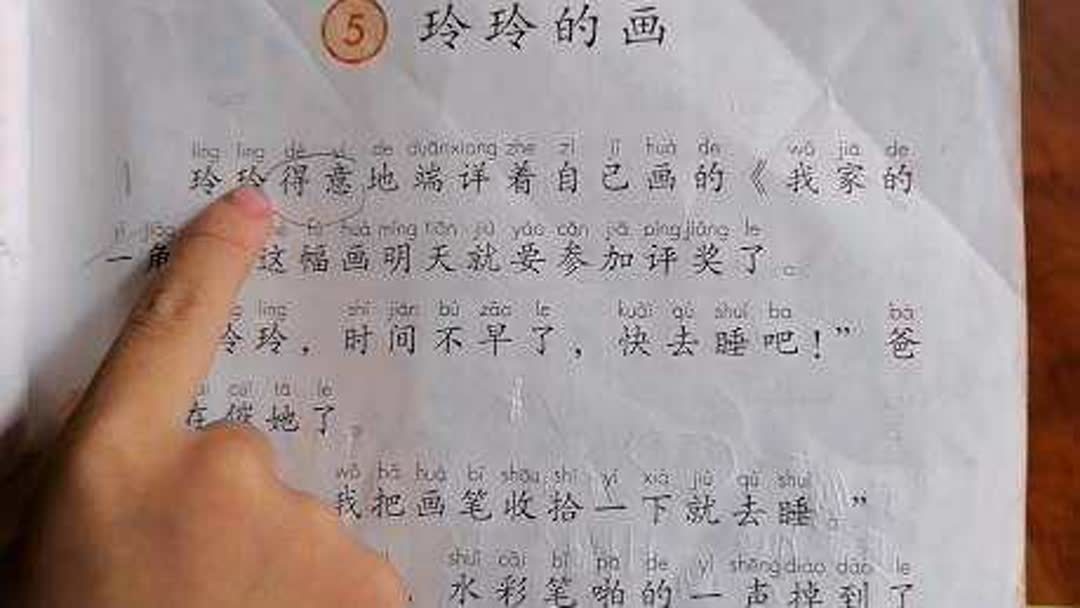 5 玲玲的画
líng ling dé yì de duānxiang zhe zì jǐ huà de wǒ jiā de
1 玲玲得意地端详着自己画的《我家的
fú huà míng tiān jiù yào cān jiā píng jiǎng le
一角 这幅画明天就要参加评奖了。
ling shí jiān bù zǎo le kuài qù shuì ba bà
玲玲，时间不早了，快去睡吧！”爸
cuī tā le
在催她了。
wǒ bǎ huà bǐ shōu shi yí xià jiù qù shuì
我把画笔收拾一下就去睡。”
shuǐ cǎi bǐ pā de yì shēng diào dào le
水彩笔啪的一声掉到了